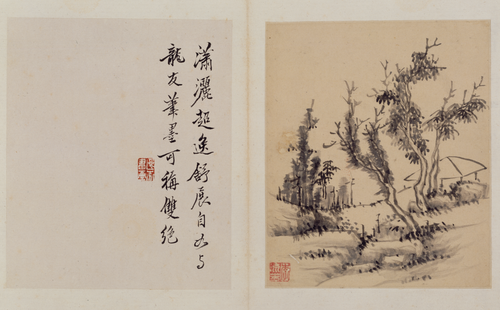 瀟灑超逸舒展自如與
龍友筆墨可稱雙絕